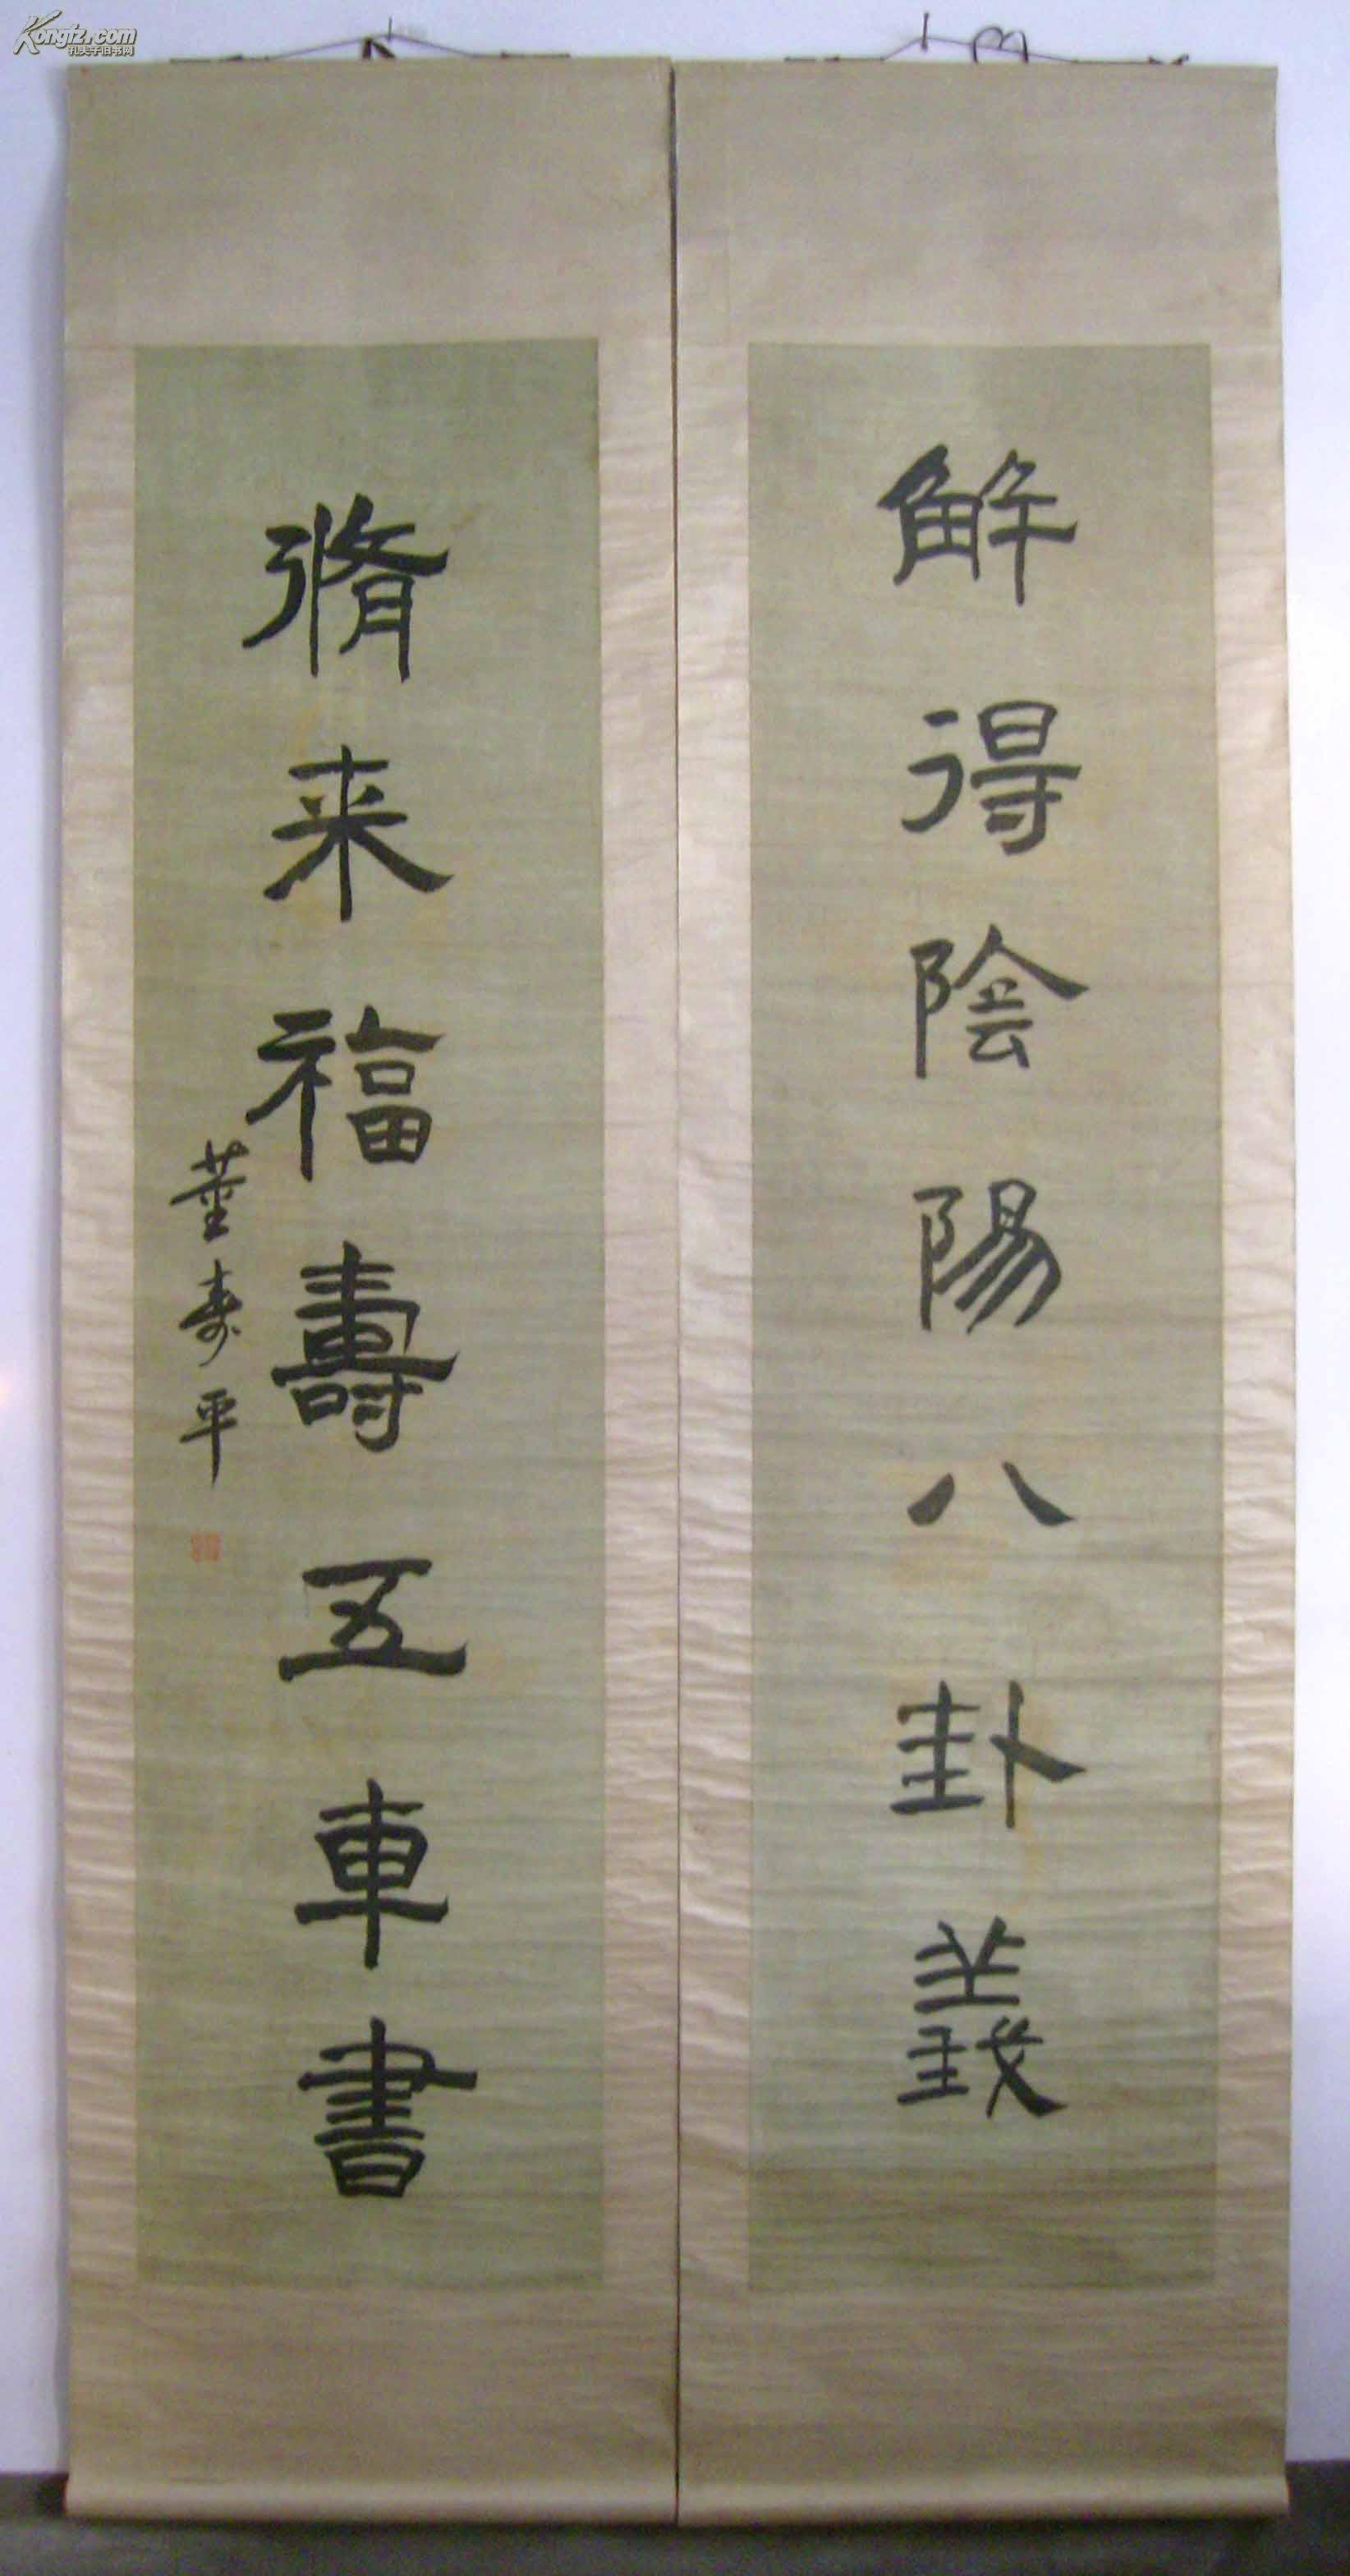 解得陰陽八卦義
脩来福壽五車書
董壽平
Kongfz.com
孔夫子旧书网